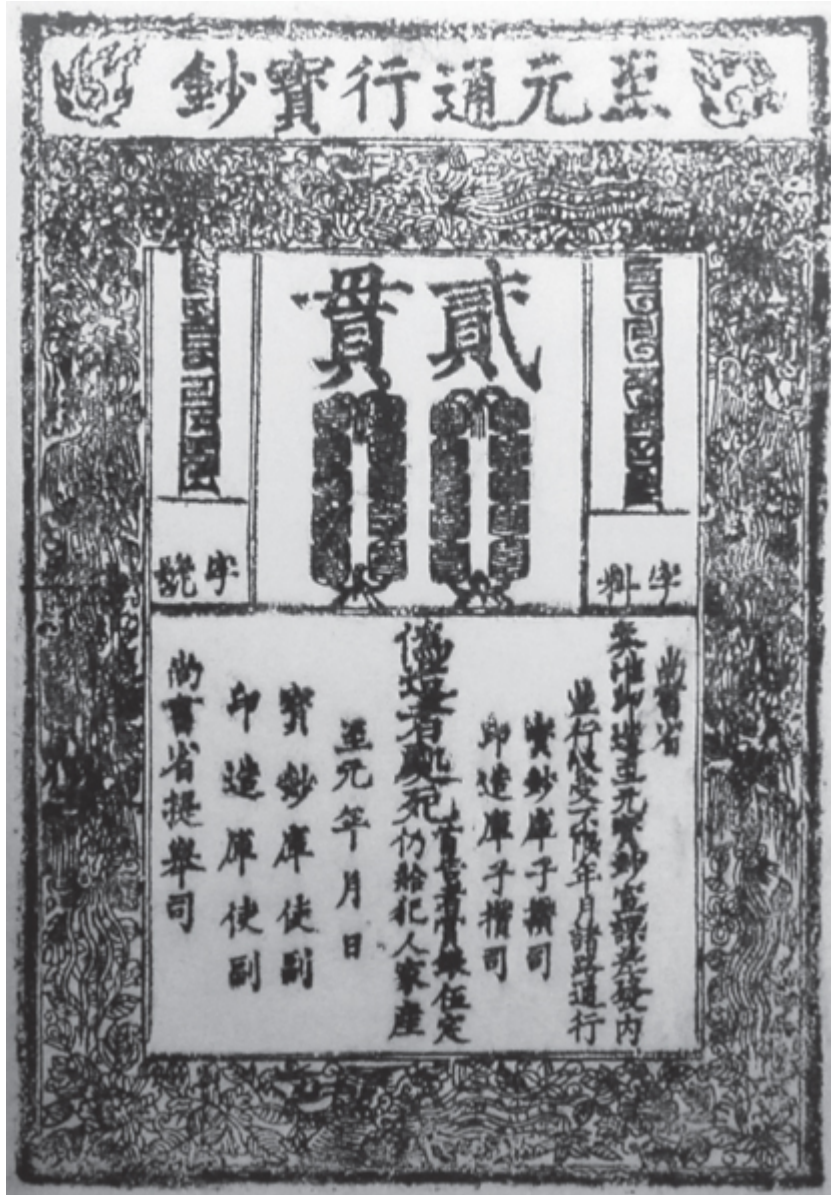 至元通行寶鈔
字料
貳貫
字號
尚書省
奏准印造至元寶鈔宣課差發內
並行收受不限年月諸路通行
寶鈔庫子攢司
印造庫子攢司
偽造者處死
首告者賞銀伍定
仍給犯人家產
至元年月日
寶鈔庫使副
印造庫使副
尚書省提舉司